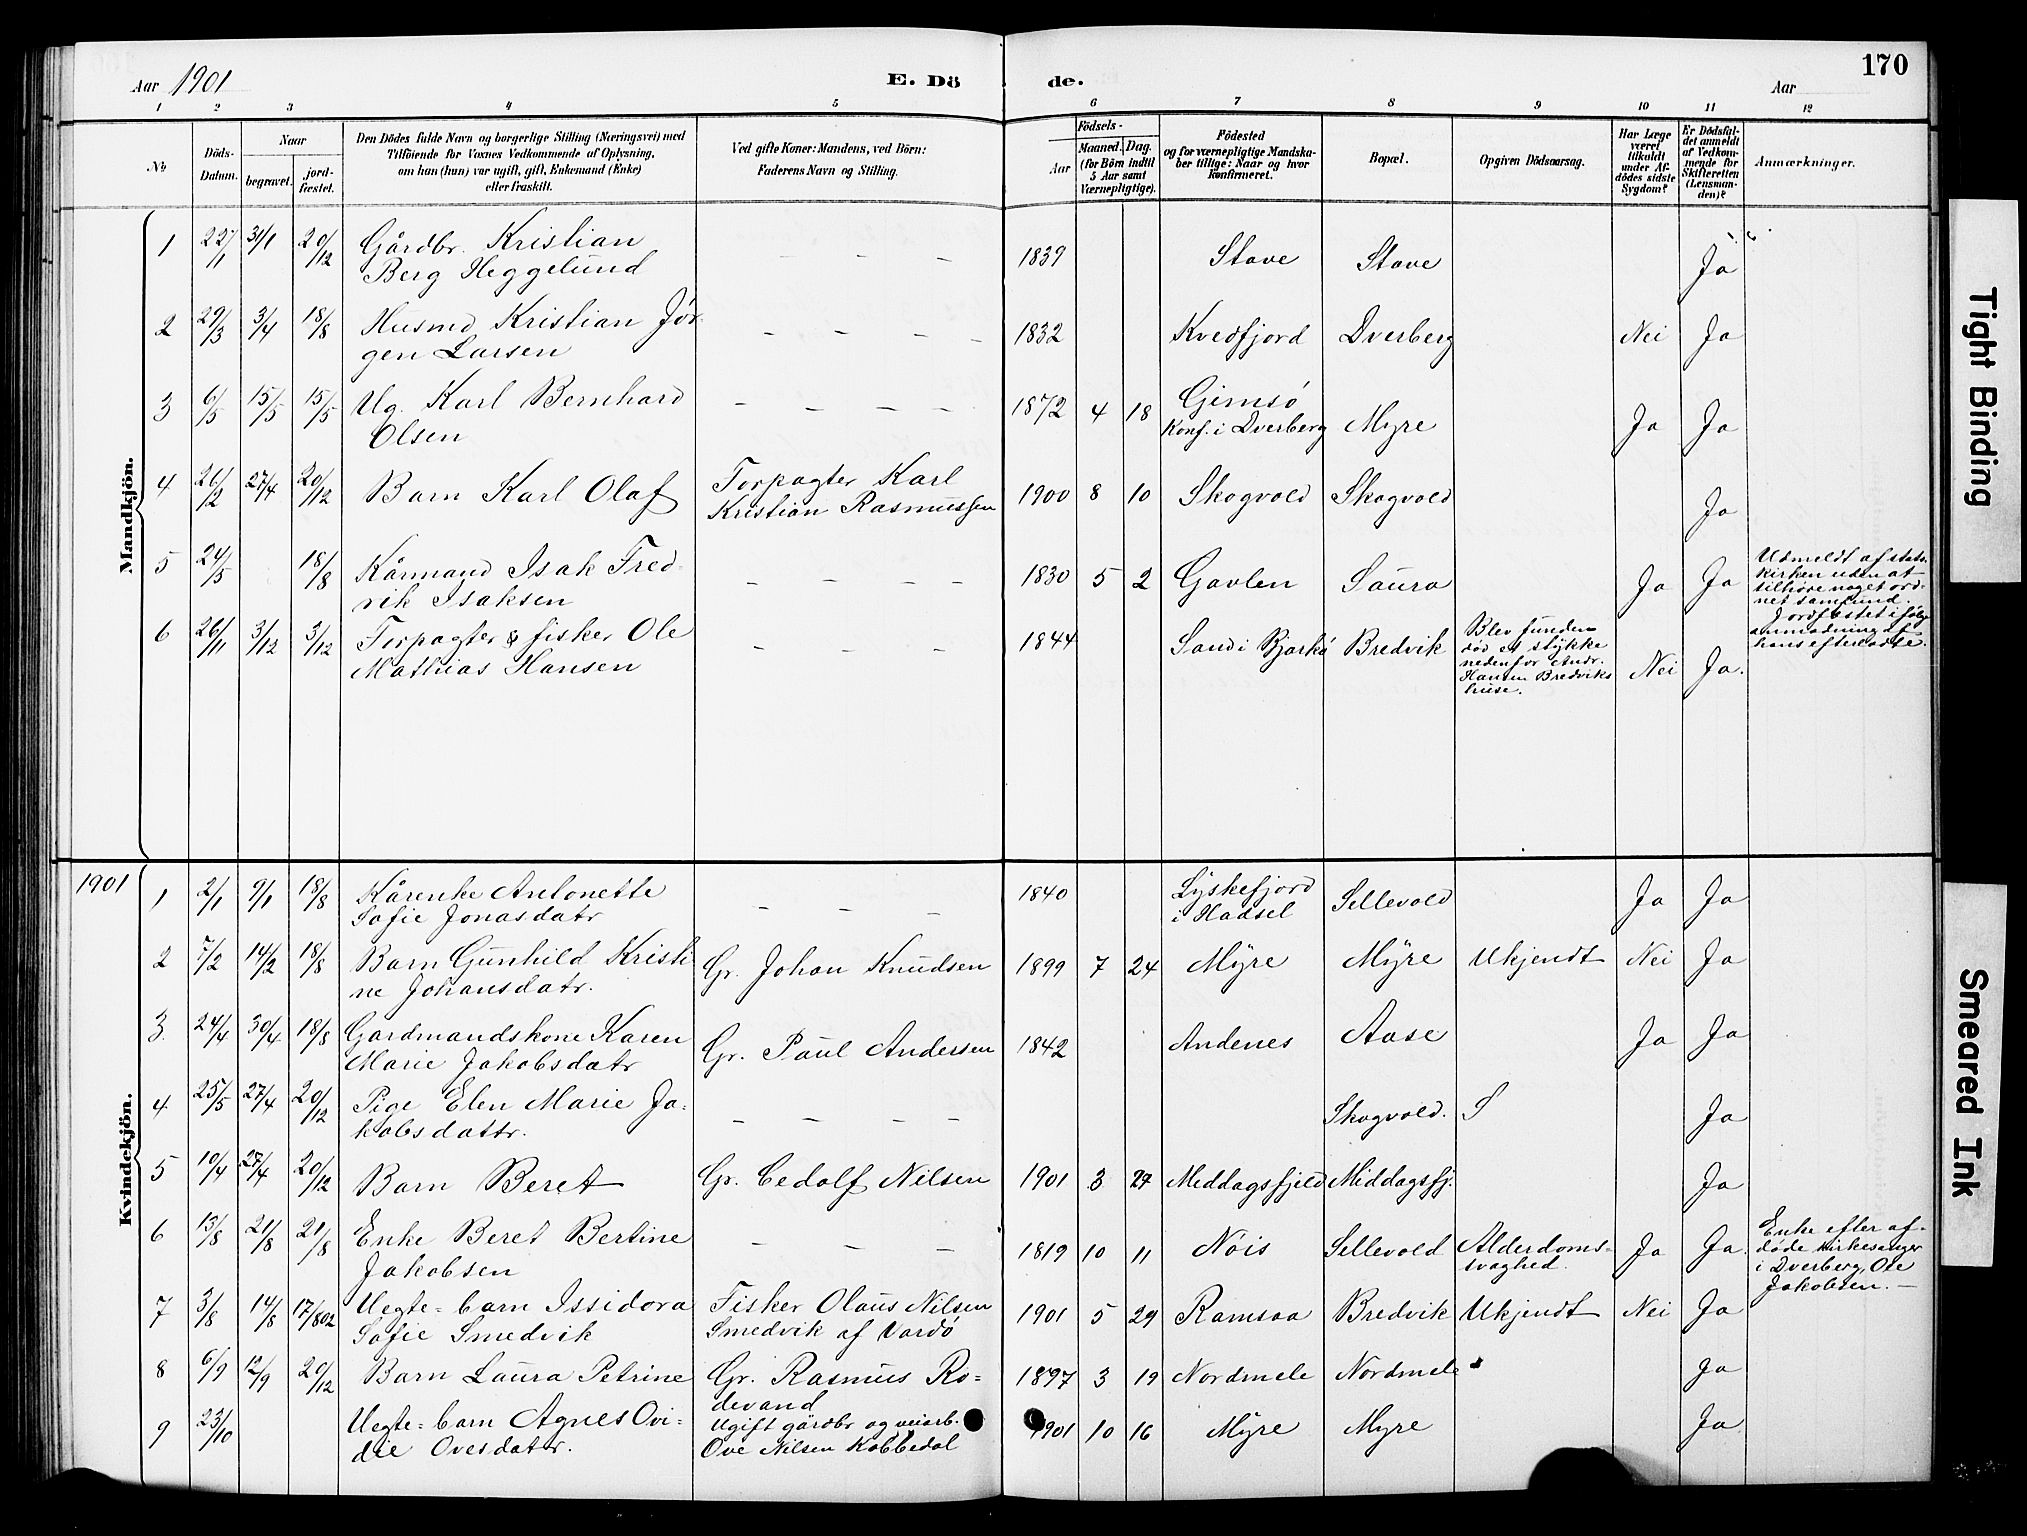 Aar 1901
E. Dö
de.
Aar
170
1 2 3 4 5 6 7 8 9 10 11 12
No
Döds-
Datum.
Naar
begravet.
jord-
fæstet.
Den Dödes fulde Navn og borgerlige Stilling (Næringsvei) med
Tilföiende for Voxnes Vedkommende af Oplysning,
om han (hun) var ugift, gift, Enkemand (Enke)
eller fraskilt.
Ved gifte Koner: Mandens, ved Börn:
Faderens Navn og Stilling.
Födsels-
Aar
Maaned. Dag.
(for Börn indtil
5 Aar samt
Værnepligtige).
Födested
og for værnepligtige Mandska-
ber tillige: Naar og hvor
Konfirmeret.
Bopæl.
Opgiven Dödsaarsag.
Har Læge
været
tilkaldt
under Af-
dödes sidste
Sygdom?
Er Dödsfal-
det anmeldt
af Vedkom-
mende for
Skifteretten
(Lensman-
den)?
Anmærkninger.
Mandkjön.
1 22/1 31/1 20/12 Gårdbr. Kristian
Berg Heggelund
— — — 1839 Stave Stave Ja
2 29/3 3/4 18/8 Husmd Kristian Jör-
gen Larsen
— — — — 1832 Kvedfjord Dverberg Nei Ja
3 6/5 15/5 15/5 Ug. Karl Bernhard
Olsen
— — — — 1872 4 18 Gimsö
Konf. i Dverberg Myre Ja Ja
4 26/2 27/4 20/12 Barn Karl Olaf
Forpagter Karl
Kristian Rasmussen
1900 8 10 Skogvold Skogvold Ja
5 24/5 18/8 Kårmand Isak Fred-
rik Isaksen
— — — — 1830 5 2 Gavlen Saura Ja Ja
Udmeldt af stats-
kirken uden at
tilhöre noget ord-
net samfund.
Jordfæstet ifölge
anmodning af
hans efterladte.
6 26/11 3/12 3/12 Forpagter & fisker Ole
Mathias Hansen
— — — 1844 Sand i Bjarkö Bredvik
Blev funden
död et stykke
nedenfor Andr.
Hansen Bredviks
huse.
Nei Ja.
1901
Kvindekjön.
1 2/1 9/1 18/8 Kårenke Antonette
Sofie Jonasdatr
— — — 1840 Lyskefjord
i Hadsel Sellevold Ja Ja
2 7/2 14/2 18/8 Barn Gunhild Kristi-
ne Johansdatr.
Gr. Johan Knudsen 1899 7 24 Myre Myre Ukjendt Nei Ja
3. 24/4 30/4 18/8 Gardmandskone Karen
Marie Jakobsdatr
Gr. Paul Andersen 1842 Andenes Aase Ja Ja
4 25/5 27/4 20/12 Pige Elen Marie Ja-
kobsdattr.
— — — — Skogvold. S Ja
5 10/4 27/4 20/12 Barn Beret Gr. Cedolf Nilsen 1901 3 27 Meddagsfjeld Middagsfj. Ja
6 13/8 21/8 21/8 Enke Beret Bertine
Jakobsen
— — — 1819 10 11 Nöis Sellevold Alderdoms-
svaghed. Ja Ja.
Enke efter af-
döde kirkesanger
i Dverberg, Ole
Jakobsen. —
7 3/8 14/8 17/8 02 Uegte-barn Issidora
Sofie Smedvik
Fisker Olaus Nilsen
Smedvik af Vardö
1901 5 29 Ramsaa Bredvik Ukjendt Nei Ja
8 6/9 12/9 20/12 Barn Laura Petrine
Gr. Rasmus Ro-
devand
1897 3 19 Nordmele Nordmele Ja
9 23/10 Uegte-barn Agnes Ovi-
die Ovesdatr.
Ugift gårdbr og veiarb.
Ove Nilsen Kobbedal
1901 10 16 Myre Myre Ja
Tight Binding
Smeared Ink